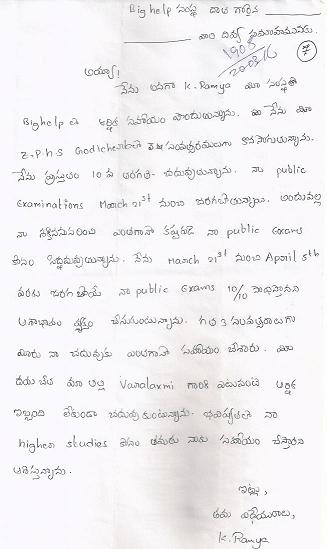 Bighelp సంస్థ దాత గారైన
వారి దివ్య సముఖమునకు.
7
1903
20.03/16
అయ్యా!
నేను అనగా K. Ramya మీ సంస్థతో
Bighelp లో ఆర్థిక సహాయం పొందుతున్నాను. నేను మా
Z.P.H.S లో సంవత్సరములుగా కొనసాగుతున్నాను.
నేను ప్రస్తుతం 10 వ తరగతి చదువుతున్నాను. నా public
Examinations March 21st నుంచి జరగబోతున్నాయి. అందువల్ల
నా ఎంతగానో కష్టపడి నా public Exams
కోసం సిద్ధమవుతున్నాను. నేను March 21st నుంచి April 5th
వరకు జరగబోయే నా public Exams 10/10 సాధిస్తానని
ఆశాభావం వ్యక్తం చేసుకుంటున్నాను. గత 3 సంవత్సరాలుగా
మీరు నా చదువుకు ఎంతగానో సహాయం చేశారు. మీ
దయ వల్ల మా తల్లి Varalaxmi గారికి ఎటువంటి ఆర్థిక
ఇబ్బంది లేకుండా చదువుకుంటున్నాను. భవిష్యత్తులో నా
higher studies కోసం తమరు నాకు సహాయం చేస్తారని
ఆశిస్తున్నాను.
ఇట్లు,
తమ విధేయురాలు,
K. Ramya